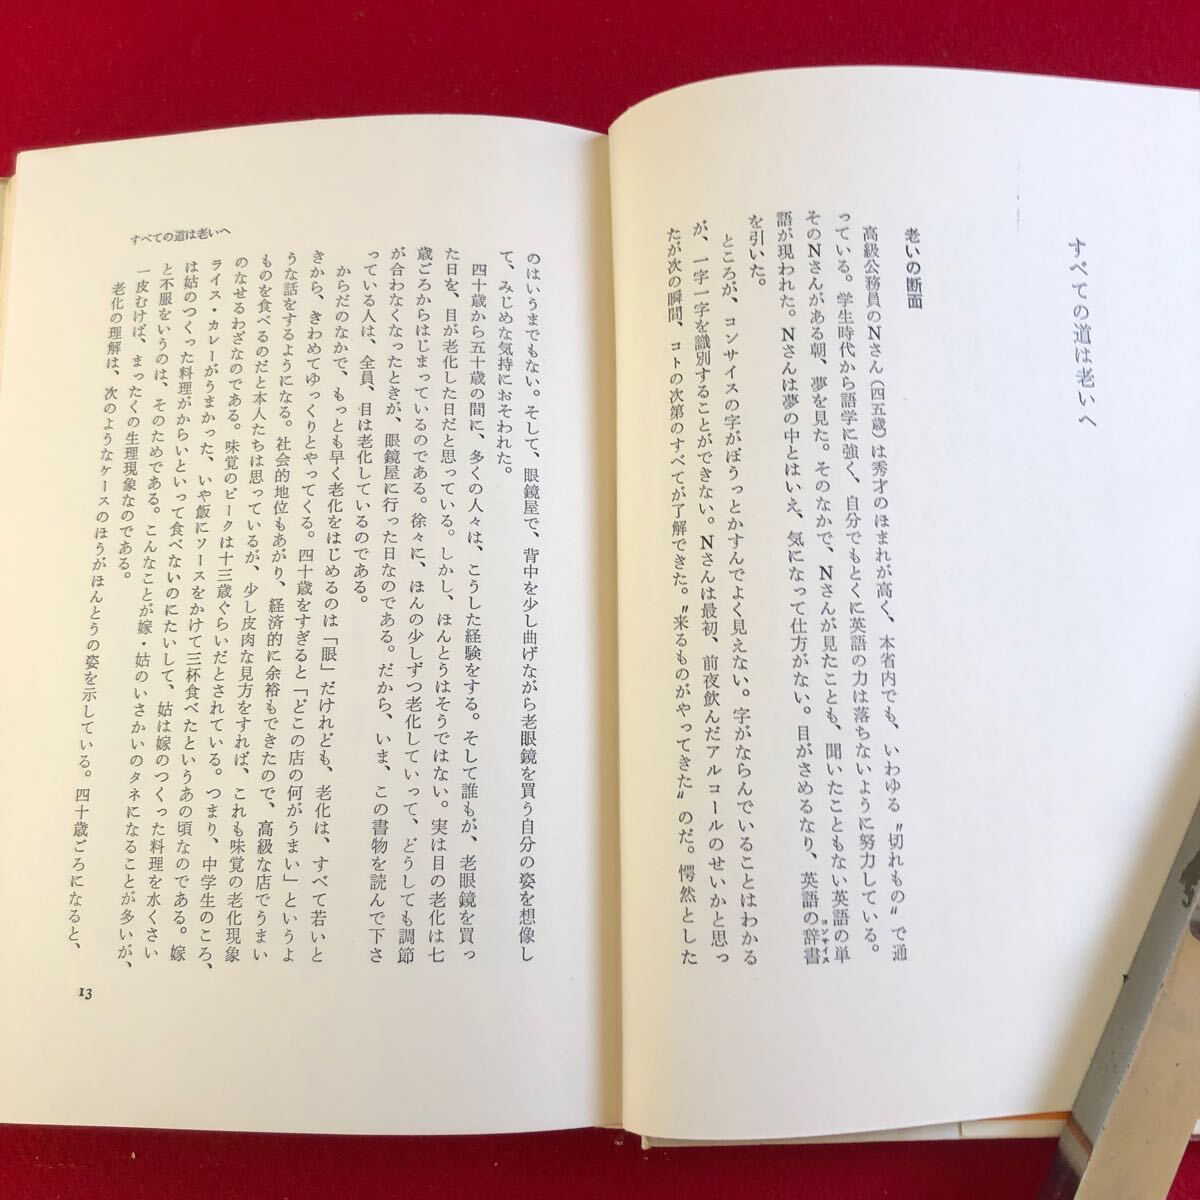 すべての道は老いへ
老いの断面
高級公務員のNさん(四五歳)は秀才のほまれが高く、本省内でも、いわゆる〝切れもの〟で通
っている。学生時代から語学に強く、自分でもとくに英語の力は落ちないように努力している。
そのNさんがある朝、夢を見た。そのなかで、Nさんが見たことも、聞いたこともない英語の単
語が現われた。Nさんは夢の中とはいえ、気になって仕方がない。目がさめるなり、英語の辞書
コンサイス
を引いた。
ところが、コンサイスの字がぼうっとかすんでよく見えない。字がならんでいることはわかる
が、一字一字を識別することができない。Nさんは最初、前夜飲んだアルコールのせいかと思っ
たが次の瞬間、コトの次第のすべてが了解できた。〝来るものがやってきた〟のだ。愕然とした
のはいうまでもない。そして、眼鏡屋で、背中を少し曲げながら老眼鏡を買う自分の姿を想像し
て、みじめな気持におそわれた。
四十歳から五十歳の間に、多くの人々は、こうした経験をする。そして誰もが、老眼鏡を買っ
た日を、目が老化した日だと思っている。しかし、ほんとうはそうではない。実は目の老化は七
歳ごろからはじまっているのである。徐々に、ほんの少しずつ老化していって、どうしても調節
が合わなくなったときが、眼鏡屋に行った日なのである。だから、いま、この書物を読んで下さ
っている人は、全員、目は老化しているのである。
からだのなかで、もっとも早く老化をはじめるのは「眼」だけれども、老化は、すべて若いと
きから、きわめてゆっくりとやってくる。四十歳をすぎると「どこの店の何がうまい」というよ
うな話をするようになる。社会的地位もあがり、経済的に余裕もできたので、高級な店でうまい
ものを食べるのだと本人たちは思っているが、少し皮肉な見方をすれば、これも味覚の老化現象
のなせるわざなのである。味覚のピークは十三歳ぐらいだとされている。つまり、中学生のころ、
ライス・カレーがうまかった、いや飯にソースをかけて三杯食べたというあの頃なのである。嫁
は姑のつくった料理がからいといって食べないのにたいして、姑は嫁のつくった料理を水くさい
と不服をいうのは、そのためである。こんなことが嫁・姑のいさかいのタネになることが多いが、
一皮むけば、まったくの生理現象なのである。
老化の理解は、次のようなケースのほうがほんとうの姿を示している。四十歳ごろになると、
すべての道は老いへ
13